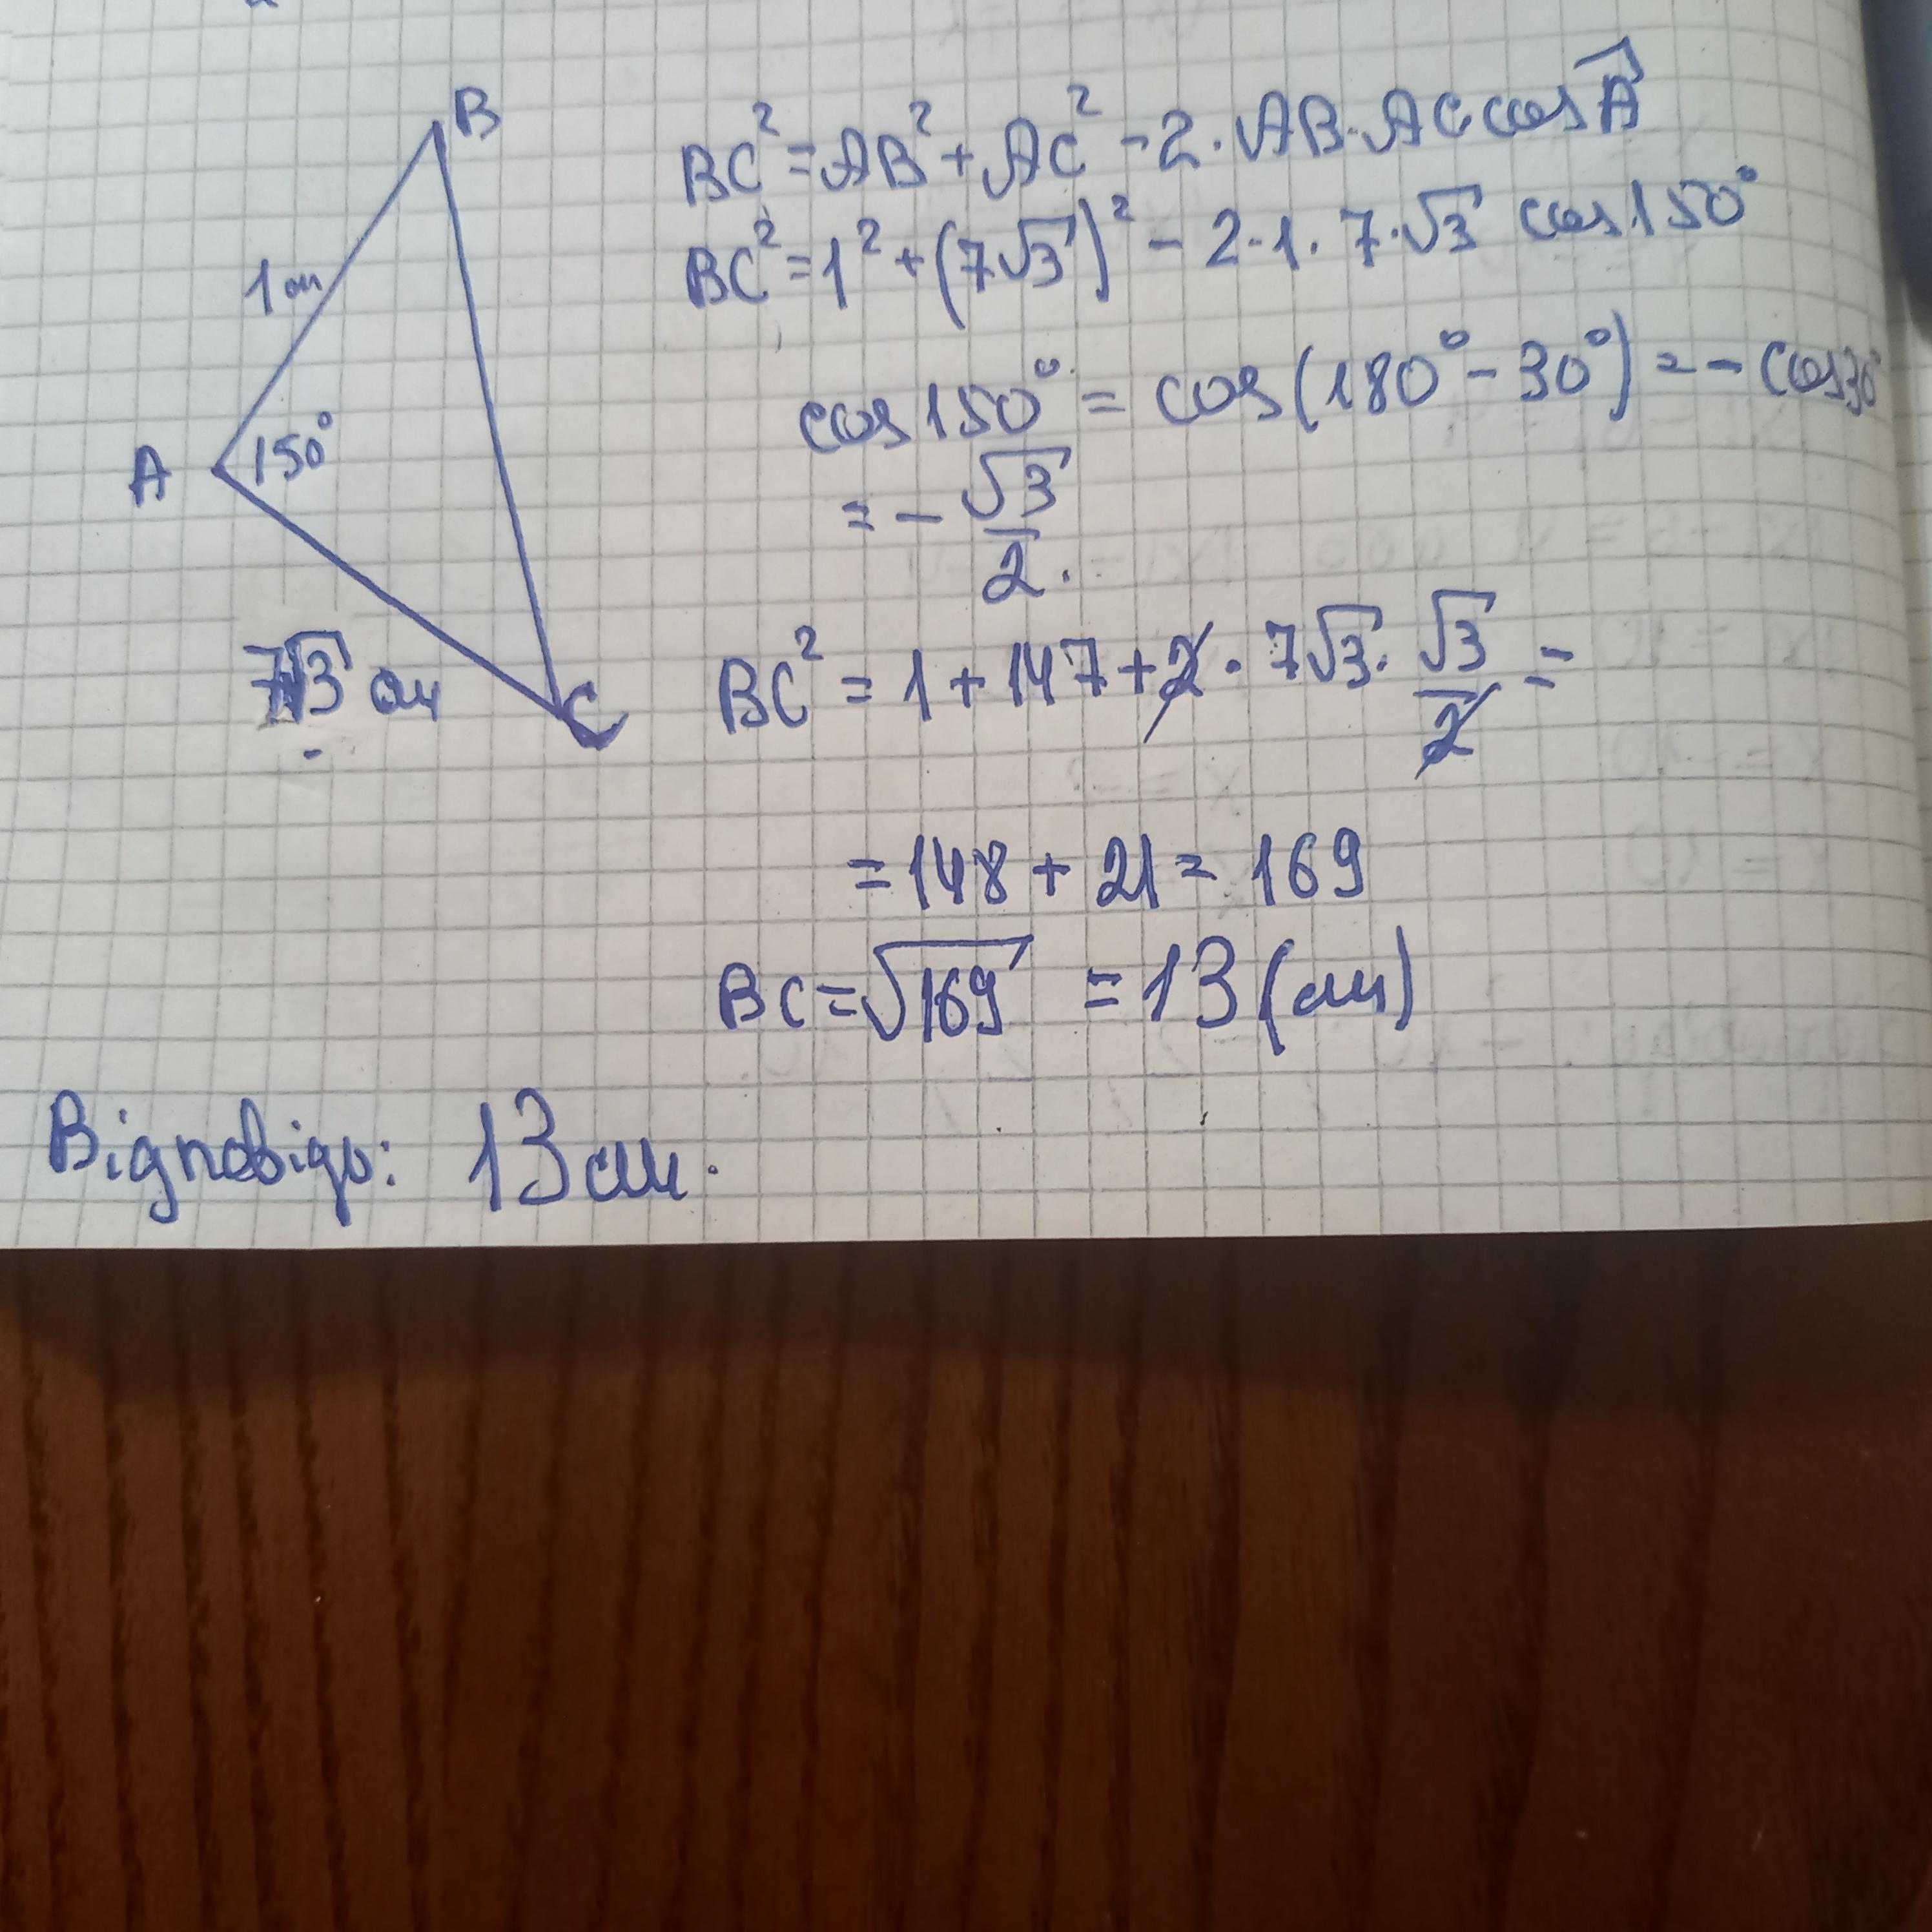 B
1 см
A
150°
7√3 см
C
BC² = AB² + AC² - 2 · AB · AC cos A
BC² = 1² + (7√3)² - 2 · 1 · 7 · √3 cos 150°
cos 150° = cos(180° - 30°) = - cos 30°
= - √3/2.
BC² = 1 + 147 + 2 · 7√3 · √3/2 =
= 148 + 21 = 169
BC = √169 = 13 (см)
Відповідь: 13 см.